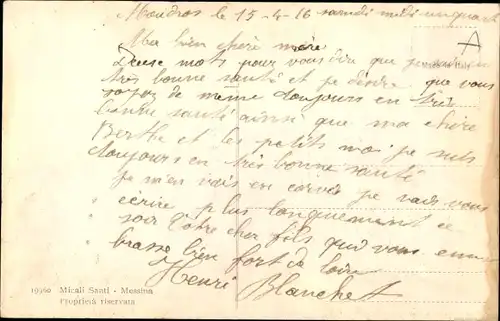 Moudros le 15-4-16 samedi midi un quart
A
Ma bien chère mère
Deux mots pour vous dire que je suis en
très bonne santé et je désire que vous
soyez de même toujours en très
bonne santé ainsi que ma chère
Berthe et les petits moi je suis
toujours en très bonne santé
je m'en vais en corvée je vais vous
écrire plus longuement ce
soir Votre cher fils qui vous em
brasse bien fort de loin
Henri Blanchet
19360 Micali Santi - Messina
Proprietà riservata